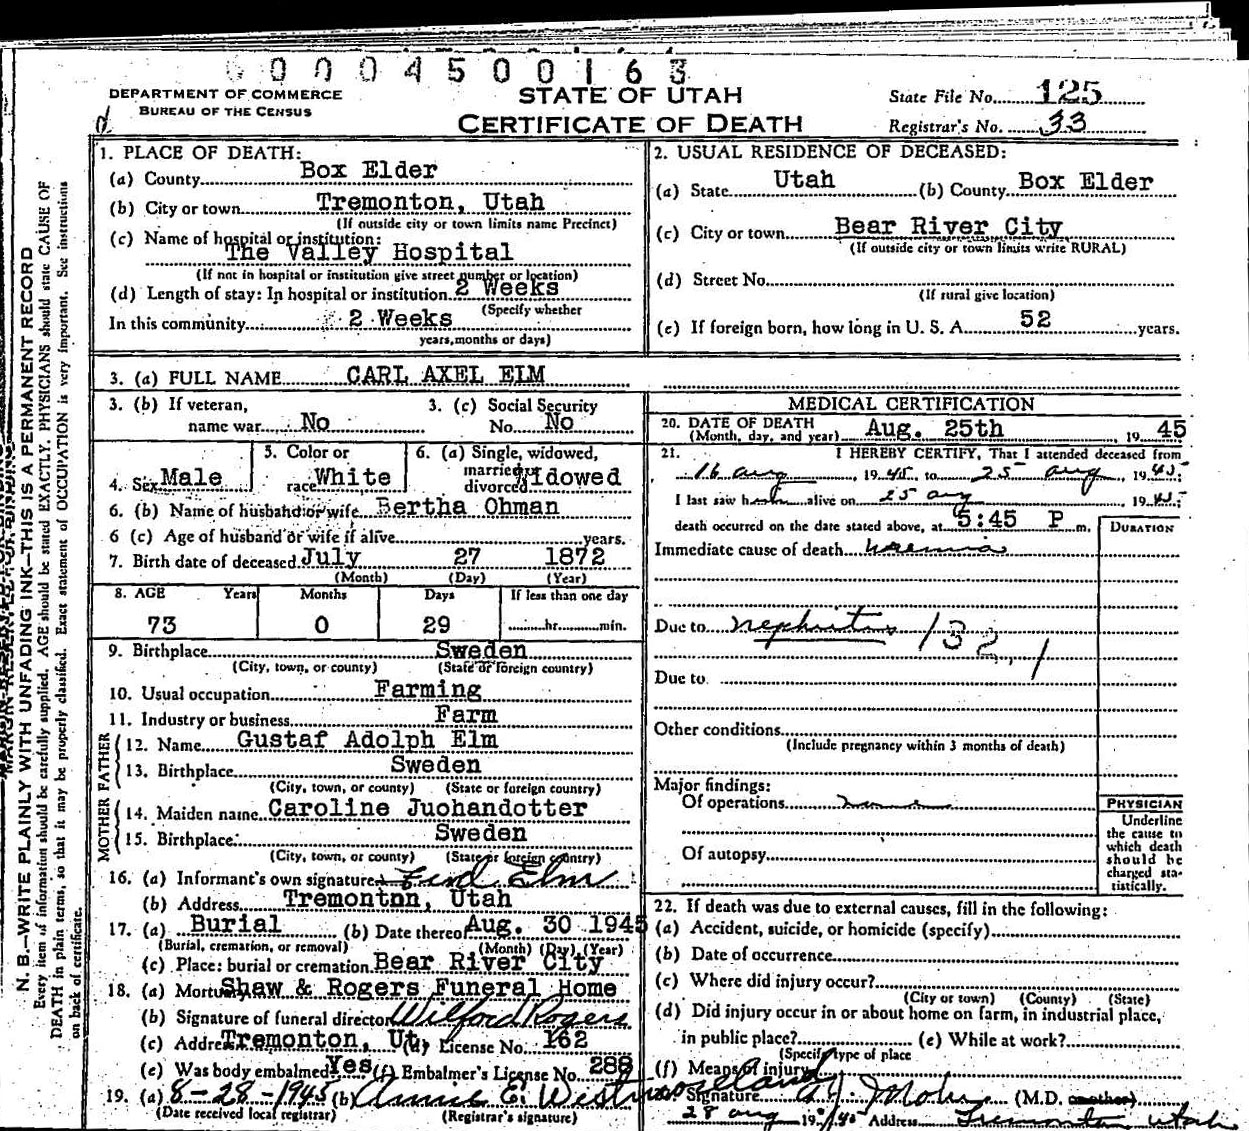 00004500163
DEPARTMENT OF COMMERCE
BUREAU OF THE CENSUS
STATE OF UTAH
CERTIFICATE OF DEATH
State File No. 125
Registrar's No. 33
N. B.—WRITE PLAINLY WITH UNFADING INK—THIS IS A PERMANENT RECORD
Every item of information should be carefully supplied. AGE should be stated EXACTLY. PHYSICIANS should state CAUSE OF
DEATH in plain terms, so that it may be properly classified. Exact statement of OCCUPATION is very important. See instructions
on back of certificate.
1. PLACE OF DEATH:
(a) County Box Elder
(b) City or town Tremonton, Utah
(If outside city or town limits name Precinct)
(c) Name of hospital or institution:
The Valley Hospital
(If not in hospital or institution give street number or location)
(d) Length of stay: In hospital or institution 2 Weeks
(Specify whether
In this community 2 Weeks
years, months or days)
2. USUAL RESIDENCE OF DECEASED:
(a) State Utah (b) County Box Elder
(c) City or town Bear River City
(If outside city or town limits write RURAL)
(d) Street No.
(If rural give location)
(e) If foreign born, how long in U. S. A. 52 years.
3. (a) FULL NAME CARL AXEL ELM
3. (b) If veteran, 3. (c) Social Security
name war No No. No
5. Color or 6. (a) Single, widowed,
4. Sex Male race White married, divorced Widowed
6. (b) Name of husband or wife Bertha Ohman
6 (c) Age of husband or wife if alive years.
7. Birth date of deceased July 27 1872
(Month) (Day) (Year)
8. AGE Years Months Days If less than one day
73 0 29 hr. min.
9. Birthplace Sweden
(City, town, or county) (State or foreign country)
10. Usual occupation Farming
11. Industry or business Farm
FATHER
12. Name Gustaf Adolph Elm
13. Birthplace Sweden
(City, town, or county) (State or foreign country)
MOTHER
14. Maiden name Caroline Juohandotter
15. Birthplace Sweden
(City, town, or county) (State or foreign country)
16. (a) Informant's own signature Elm
(b) Address Tremontnn, Utah
17. (a) Burial (b) Date thereof Aug. 30 1945
(Burial, cremation, or removal) (Month) (Day) (Year)
(c) Place: burial or cremation Bear River City
18. (a) Mortuary Shaw & Rogers Funeral Home
(b) Signature of funeral director Wilford Rogers
(c) Address Tremonton, Ut. (d) License No. 162
(e) Was body embalmed Yes (f) Embalmer's License No. 288
19. (a) 8-28-1945 (b) Annie E. Westmoreland
(Date received local registrar) (Registrar's signature)
MEDICAL CERTIFICATION
20. DATE OF DEATH
(Month, day, and year) Aug. 25th, 1945
21. I HEREBY CERTIFY, That I attended deceased from
16 aug, 1945 to 25 aug, 1945
I last saw h alive on 25 aug 1945
death occurred on the date stated above, at 5:45 P m. DURATION
Immediate cause of death uremia
Due to nephritis 132.1
Due to
Other conditions
(Include pregnancy within 3 months of death)
Major findings:
Of operations
Of autopsy
PHYSICIAN
Underline
the cause to
which death
should be
charged sta-
tistically.
22. If death was due to external causes, fill in the following:
(a) Accident, suicide, or homicide (specify)
(b) Date of occurrence
(c) Where did injury occur?
(City or town) (County) (State)
(d) Did injury occur in or about home on farm, in industrial place,
in public place? (e) While at work?
(Specify type of place
(f) Means of injury
Signature (M.D. or other)
28 aug 1945 Address Tremonton Utah